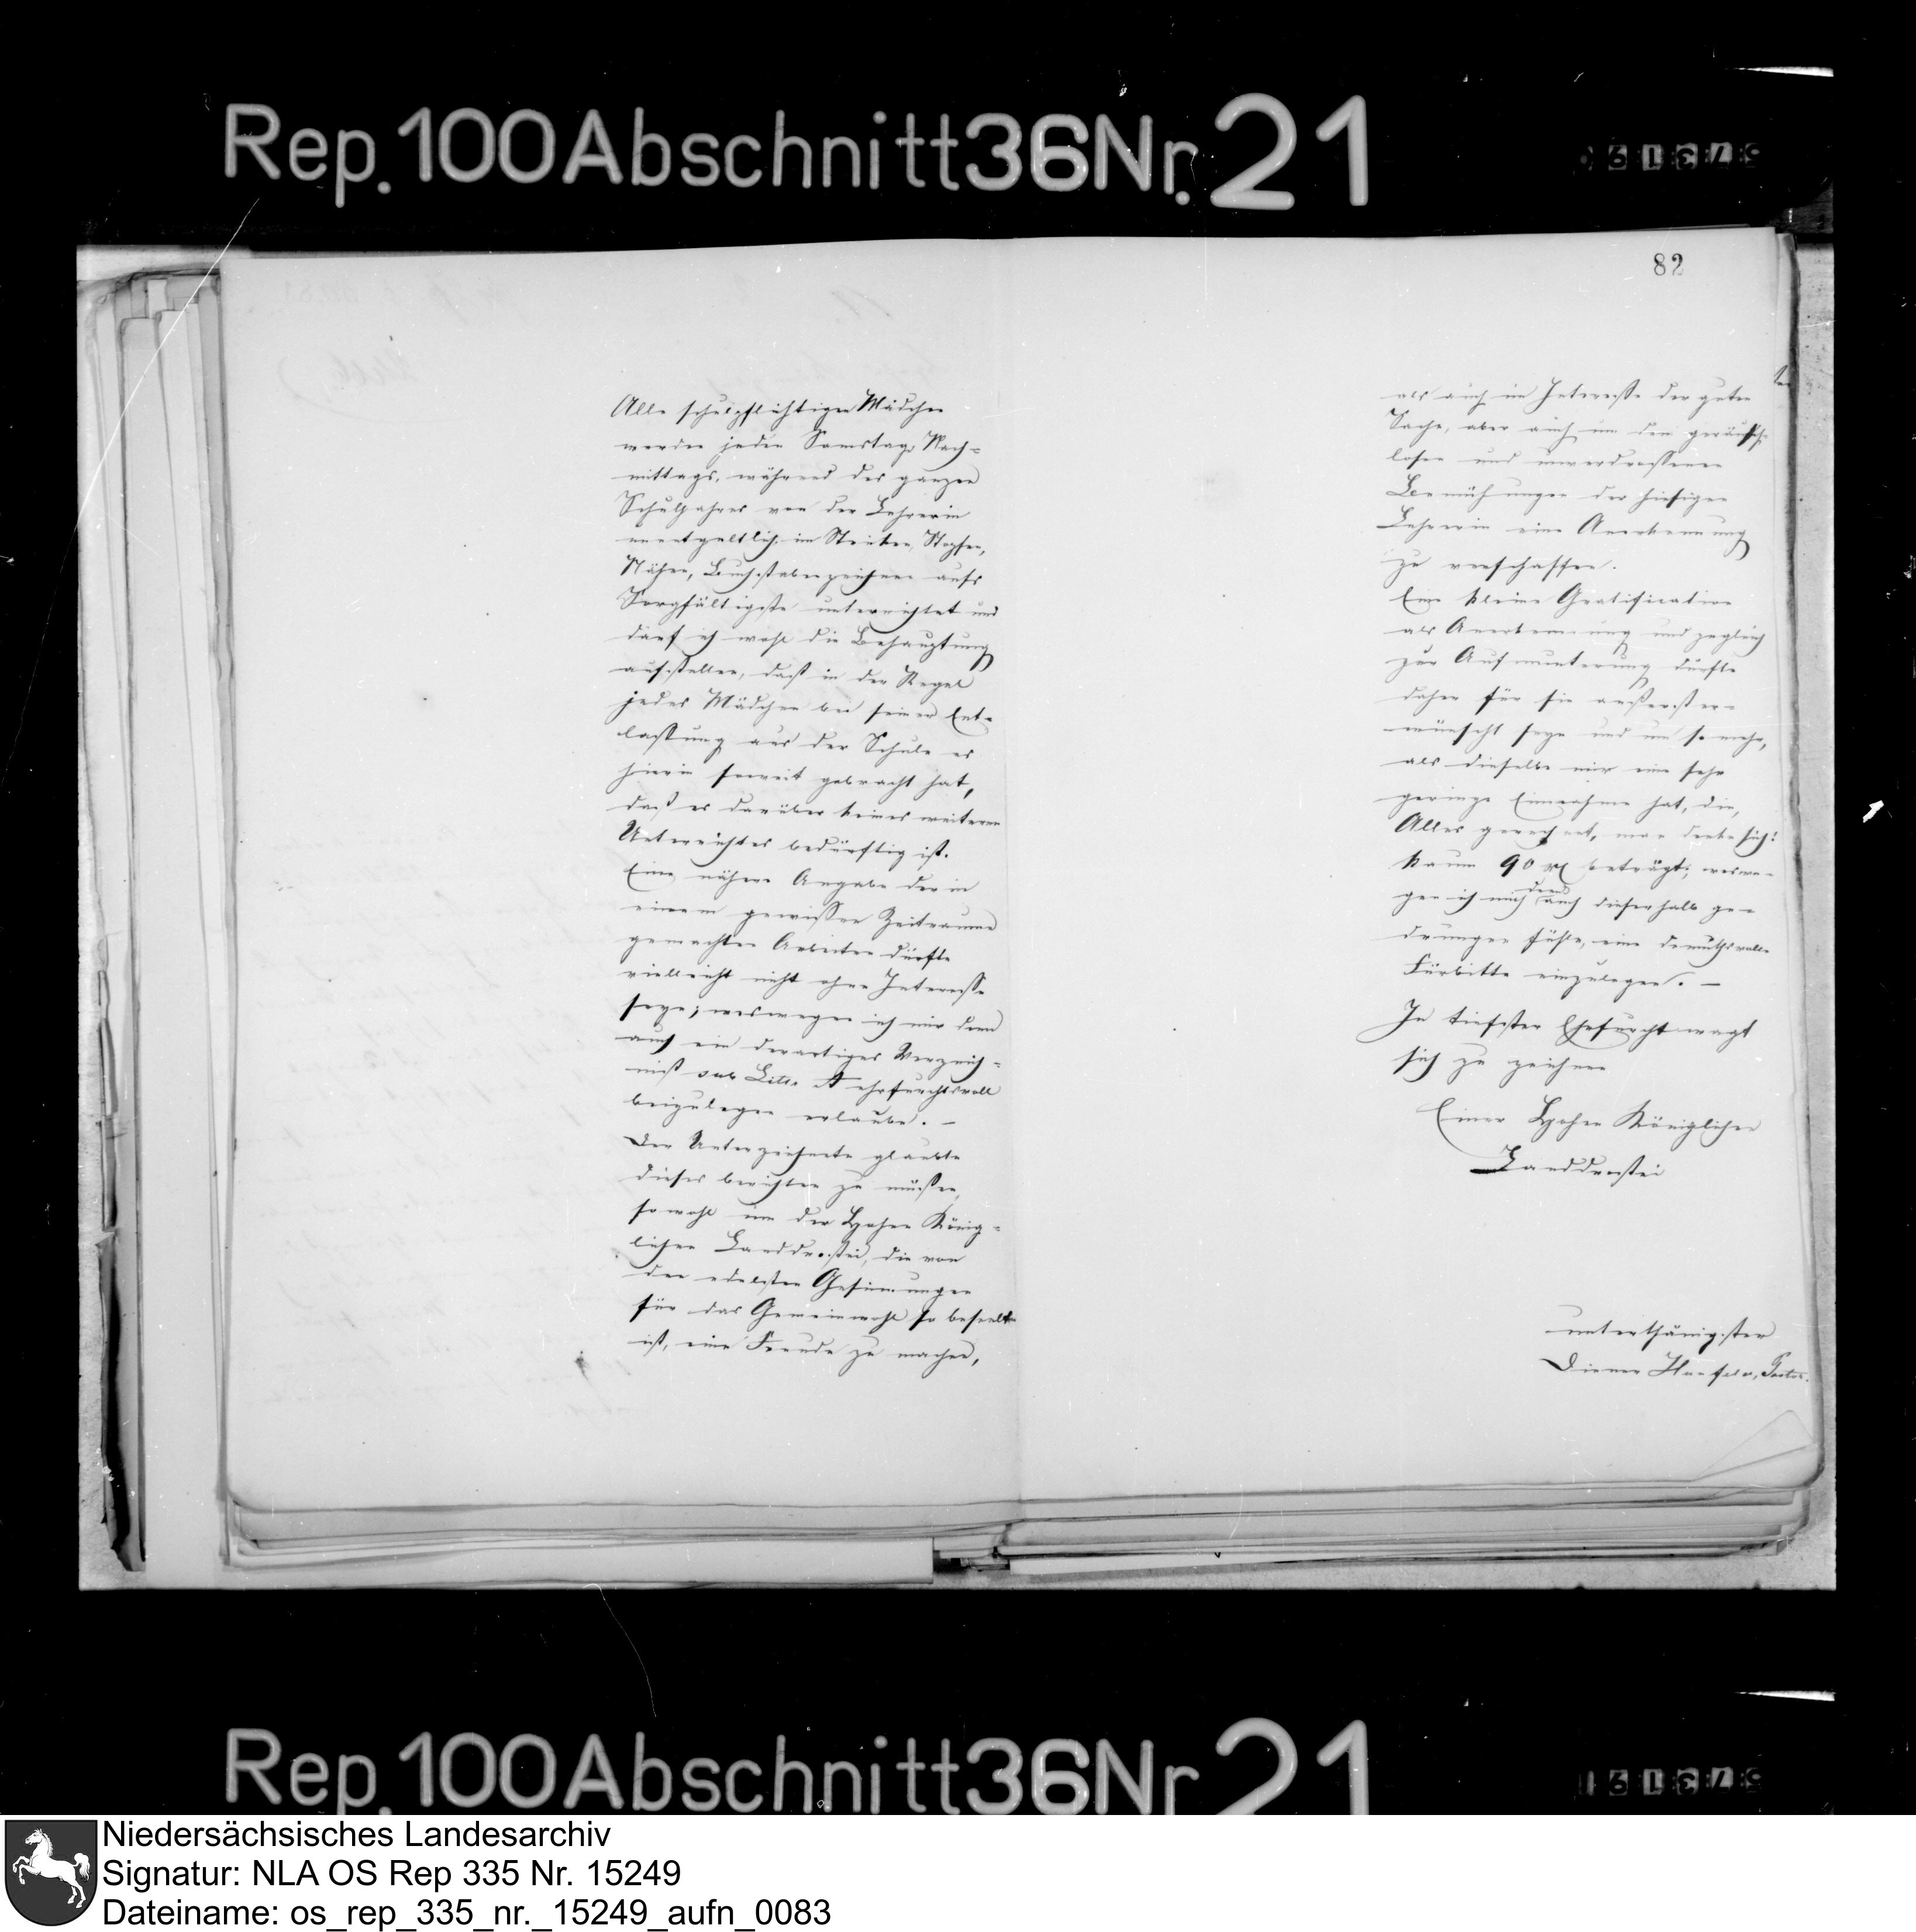 Rep. 100 Abschnitt 36 Nr. 21
82
Alle schulpflichtigen Mädchen
werden jeden Samstag, Nach-
mittags, während des ganzen
Schuljahres von der Lehrerin
unentgeltlich im Stricken, Stopfen,
Nähen, Buchstabenzeichnen aufs
Sorgfältigste unterrichtet und
darf ich wohl die Behauptung
aufstellen, daß in der Regel
jedes Mädchen bei seiner Ent-
lassung aus der Schule es
hierin soweit gebracht hat,
daß es darüber keines weiteren
Unterrichtes bedürftig ist.
Eine nähere Angabe der in
einem gewissen Zeitraume
gemachten Arbeiten dürfte
vielleicht nicht ohne Interesse
seyn; weswegen ich mir denn
auch ein derartiges Verzeich-
niß sub Litr. A ehrfurchtsvoll
beizulegen erlaube. —
Der Unterzeichnete glaubte
dieses berichten zu müssen,
sowohl um der Hohen König-
lichen Landdrostei, die von
den edelsten Gesinnungen
für das Gemeinwohl so beseelt
ist, eine Freude zu machen,
als auch im Interesse der guten
Sache, aber auch um den geräusch-
losen und unverdrossenen
Bemühungen der hiesigen
Lehrerin eine Anerkennung
zu verschaffen.
Eine kleine Gratification
als Anerkennung und zugleich
zur Aufmunterung dürfte
daher für sie äußerst er-
wünscht seyn und um so mehr,
als dieselbe nur eine sehr
geringe Einnahme hat, die,
Alles gerechnet, man denke sich!
kaum 90 rℓ beträgt; weswe-
gen ich mich denn auch dieserhalb ge-
drungen fühle, eine demuthsvolle
Fürbitte einzulegen. —
In tiefster Ehrfurcht wagt
sich zu zeichnen
Einer Hohen Königlichen
Landdrostei
unterthänigster
Diener Pastor.
Rep. 100 Abschnitt 36 Nr. 21
Niedersächsisches Landesarchiv
Signatur: NLA OS Rep 335 Nr. 15249
Dateiname: os_rep_335_nr._15249_aufn_0083